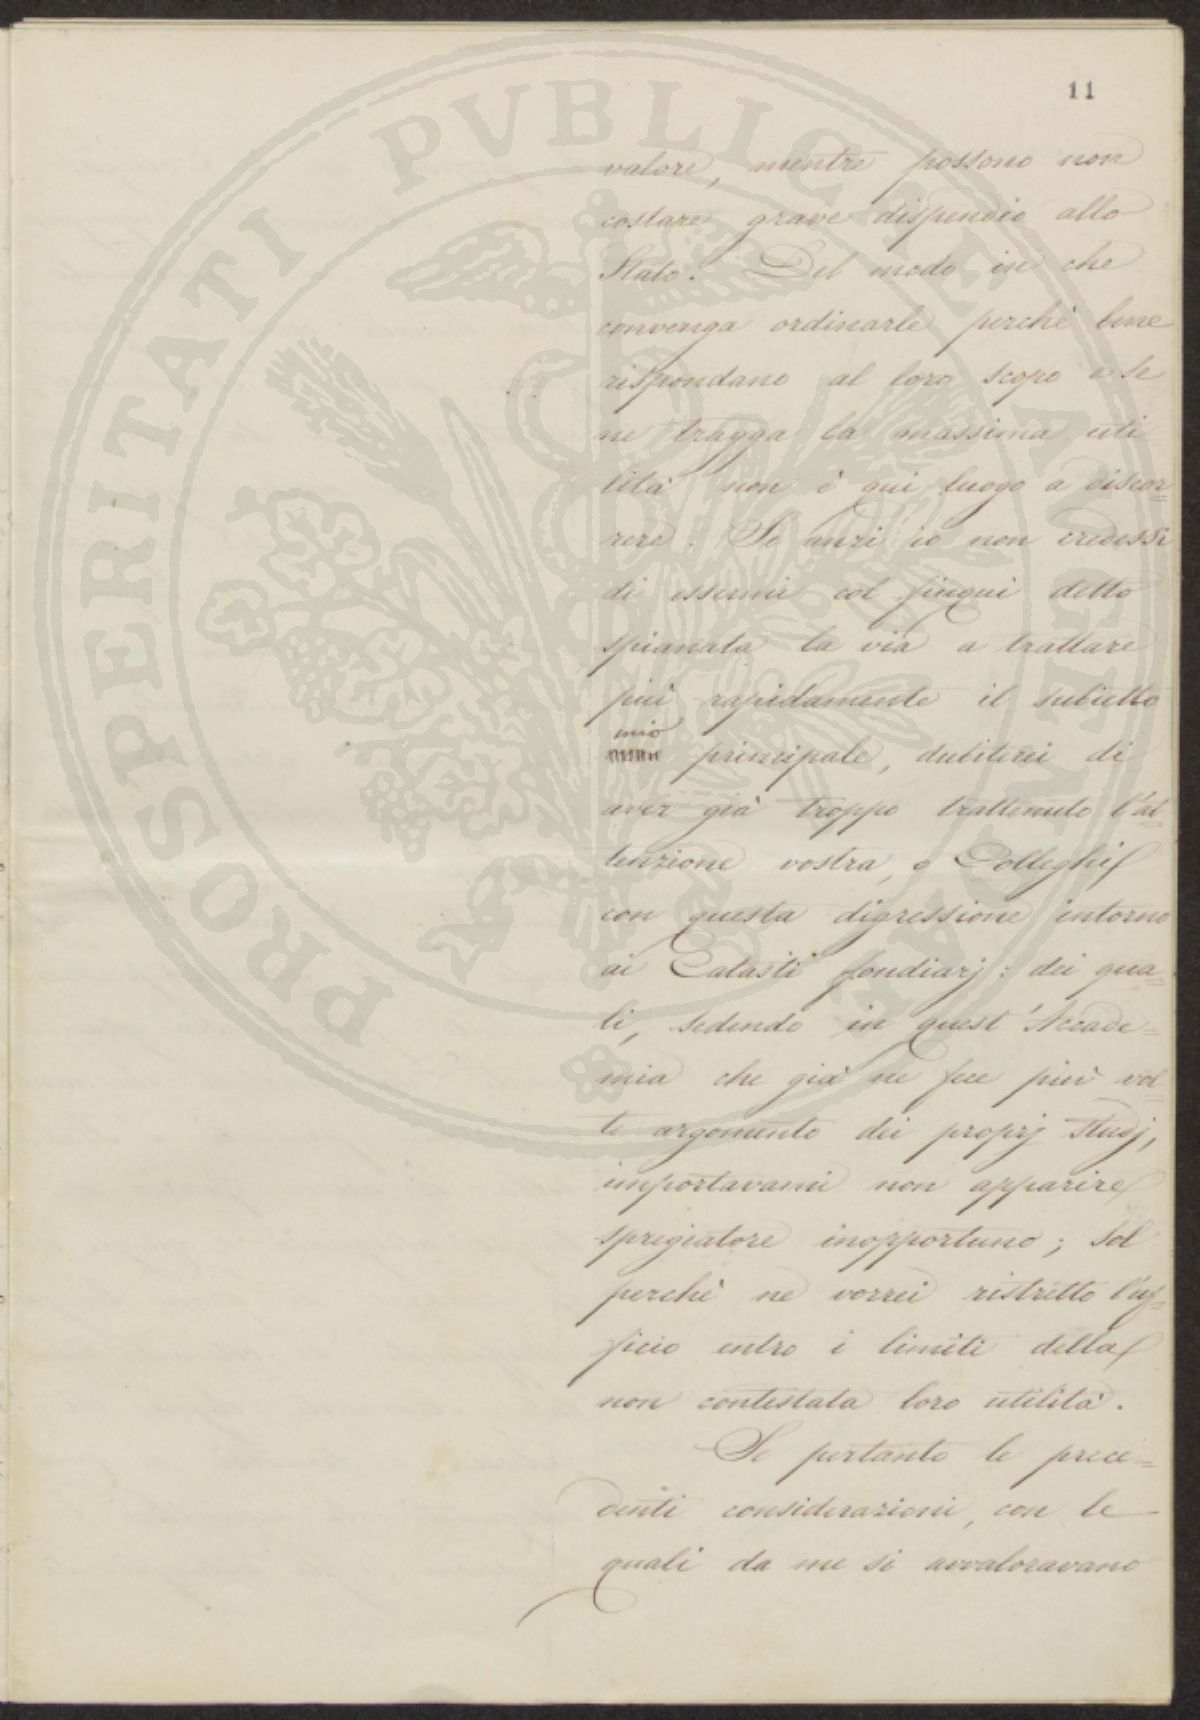 11
valore, mentre possono non
costare grave dispendio allo
Stato. Del modo in che
convenga ordinarle perchè bene
rispondano al loro scopo e se
ne tragga la massima uti
lità non è qui luogo a discor=
rere. Se anzi io non credessi
di essermi col finqui detto
spianata la via a trattare
più rapidamente il subietto
mio
principale, dubiterei di
aver già troppo trattenuto l'at=
tenzione vostra, o Colleghi
con questa digressione intorno
ai Catasti fondiarj: dei qua=
li, sedendo in quest'Accade=
mia che già ne fece più vol=
te argomento dei proprj studj,
importavami non apparire
spregiatore inopportuno; sol
perchè ne vorrei ristretto l'uf=
ficio entro i limiti della
non contestata loro utilità.
Se pertanto le prece=
denti considerazioni, con le
quali da me si avvaloravano
PROSPERITATI PVBLICAE AVGENDAE